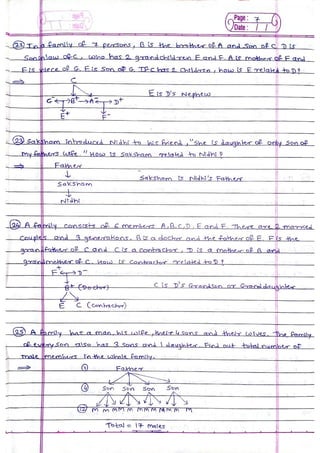 Page: 7
Date:
(23) In a family of 7 persons, B is the brother of A and Son of C. D is
Son in law of C, who has 2 grandchildren E and F. A is mother of F and
F is niece of G. E is Son of G. If C has 2 Children, how is E related to D?
⇒ C
G⁻ ↔ B⁺ ↔ A⁻ ↔ D⁺
E is D's Nephew
E⁺ F⁻
(23) Saksham Introduced Nidhi to his friend, "She is daughter of only Son of
my fathers Wife." How is Saksham related to Nidhi?
⇒ Father
↓
Saksham
Saksham is Nidhi's Father
↓
Nidhi
(24) A family consists of 6 members A, B, C, D, E and F. There are 2 married
Couples and 3 generations. B is a doctor and the father of E. F is the
grandfather of C and C is a contractor. D is a mother of B and
grandmother of C. How is Contractor related to D?
F⁺ ↔ D⁻
B⁺ (Doctor)
C is D's Grandson or Granddaughter
E C (Contractor)
(25) A family has a man, his wife, their 4 sons and their wives. The family
of every son also has 3 sons and 1 daughter. Find out total number of
male members in the whole family.
⇒ (1) Father
(4) Son Son Son Son
(12) M M M M M M M M M M M M
Total = 17 males